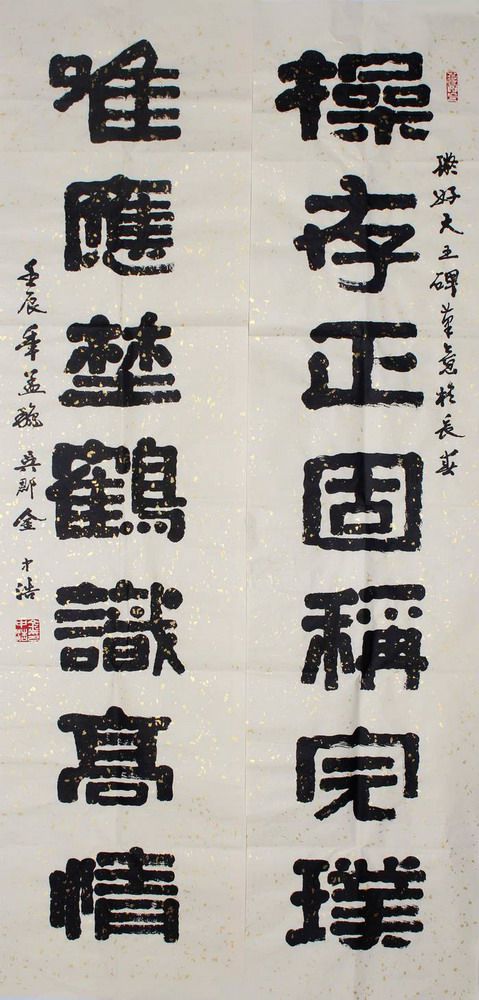 擬好大王碑筆意於長春
操存正固稱完璞
唯應埜鶴識髙情
壬辰秊孟龝吳郡金中浩